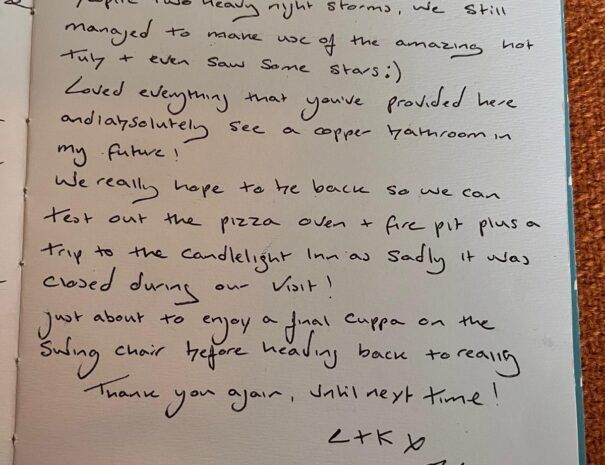 two heavy night storms, we still
managed to make use of the amazing hot
tub + even saw some stars :)
Loved everything that you've provided here
and absolutely see a copper bathroom in
my future!
We really hope to be back so we can
test out the pizza oven + fire pit plus a
trip to the Candlelight Inn as sadly it was
closed during our visit!
Just about to enjoy a final cuppa on the
swing chair before heading back to reality
Thank you again, until next time!
L+K x